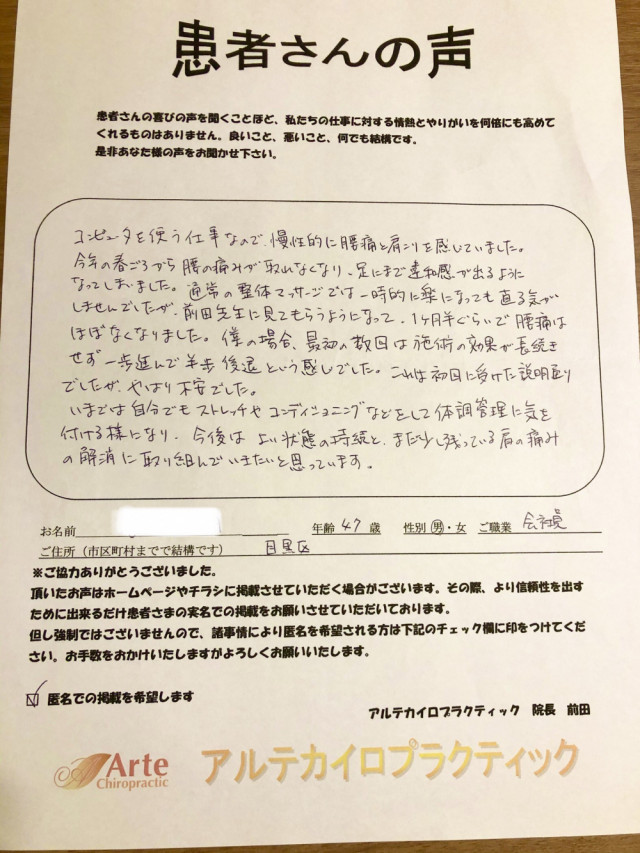 患者さんの声
患者さんの喜びの声を聞くことほど、私たちの仕事に対する情熱とやりがいを何倍にも高めて
くれるものはありません。良いこと、悪いこと、何でも結構です。
是非あなた様の声をお聞かせ下さい。
コンピュータを使う仕事なので、慢性的に腰痛と肩こりを感じていました。
今年の春ごろから腰の痛みが取れなくなり、足にまで違和感が出るように
なってしまいました。通常の整体マッサージでは一時的に楽になっても直る気が
しませんでしたが、前田先生に見てもらうようになって、1ヶ月半ぐらいで腰痛は
ほぼなくなりました。僕の場合、最初の数回は施術の効果が長続き
せず一歩進んで半歩後退という感じでした。これは初回に受けた説明通り
でしたが、やはり不安でした。
いまでは自分でもストレッチやコンディショニングなどをして体調管理に気を
付ける様になり、今後はよい状態の持続と、まだ少し残っている肩の痛み
の解消に取り組んでいきたいと思っています。
お名前 年齢 47 歳 性別 男・女 ご職業 会社員
ご住所（市区町村までで結構です） 目黒区
※ご協力ありがとうございました。
頂いたお声はホームページやチラシに掲載させていただく場合がございます。その際、より信頼性を出す
ために出来るだけ患者さまの実名での掲載をお願いさせていただいております。
但し強制ではございませんので、諸事情により匿名を希望される方は下記のチェック欄に印をつけてくだ
さい。お手数をおかけいたしますがよろしくお願いいたします。
☑ 匿名での掲載を希望します
アルテカイロプラクティック 院長 前田
Arte
Chiropractic
アルテカイロプラクティック